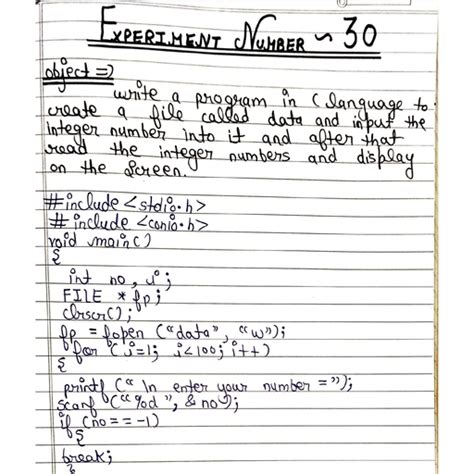 EXPERIMENT NUMBER ~ 30
object =>
write a program in C language to
create a file called data and input the
integer number into it and after that
read the integer numbers and display
on the screen.
#include <stdio.h>
# include <conio.h>
void main()
{
int no, i;
FILE * fp;
clrscr();
fp = fopen ("data", "w");
for (i=1; i<100; i++)
{
printf ("\n enter your number =");
scanf ("%d", & no);
if (no == -1)
{
break;